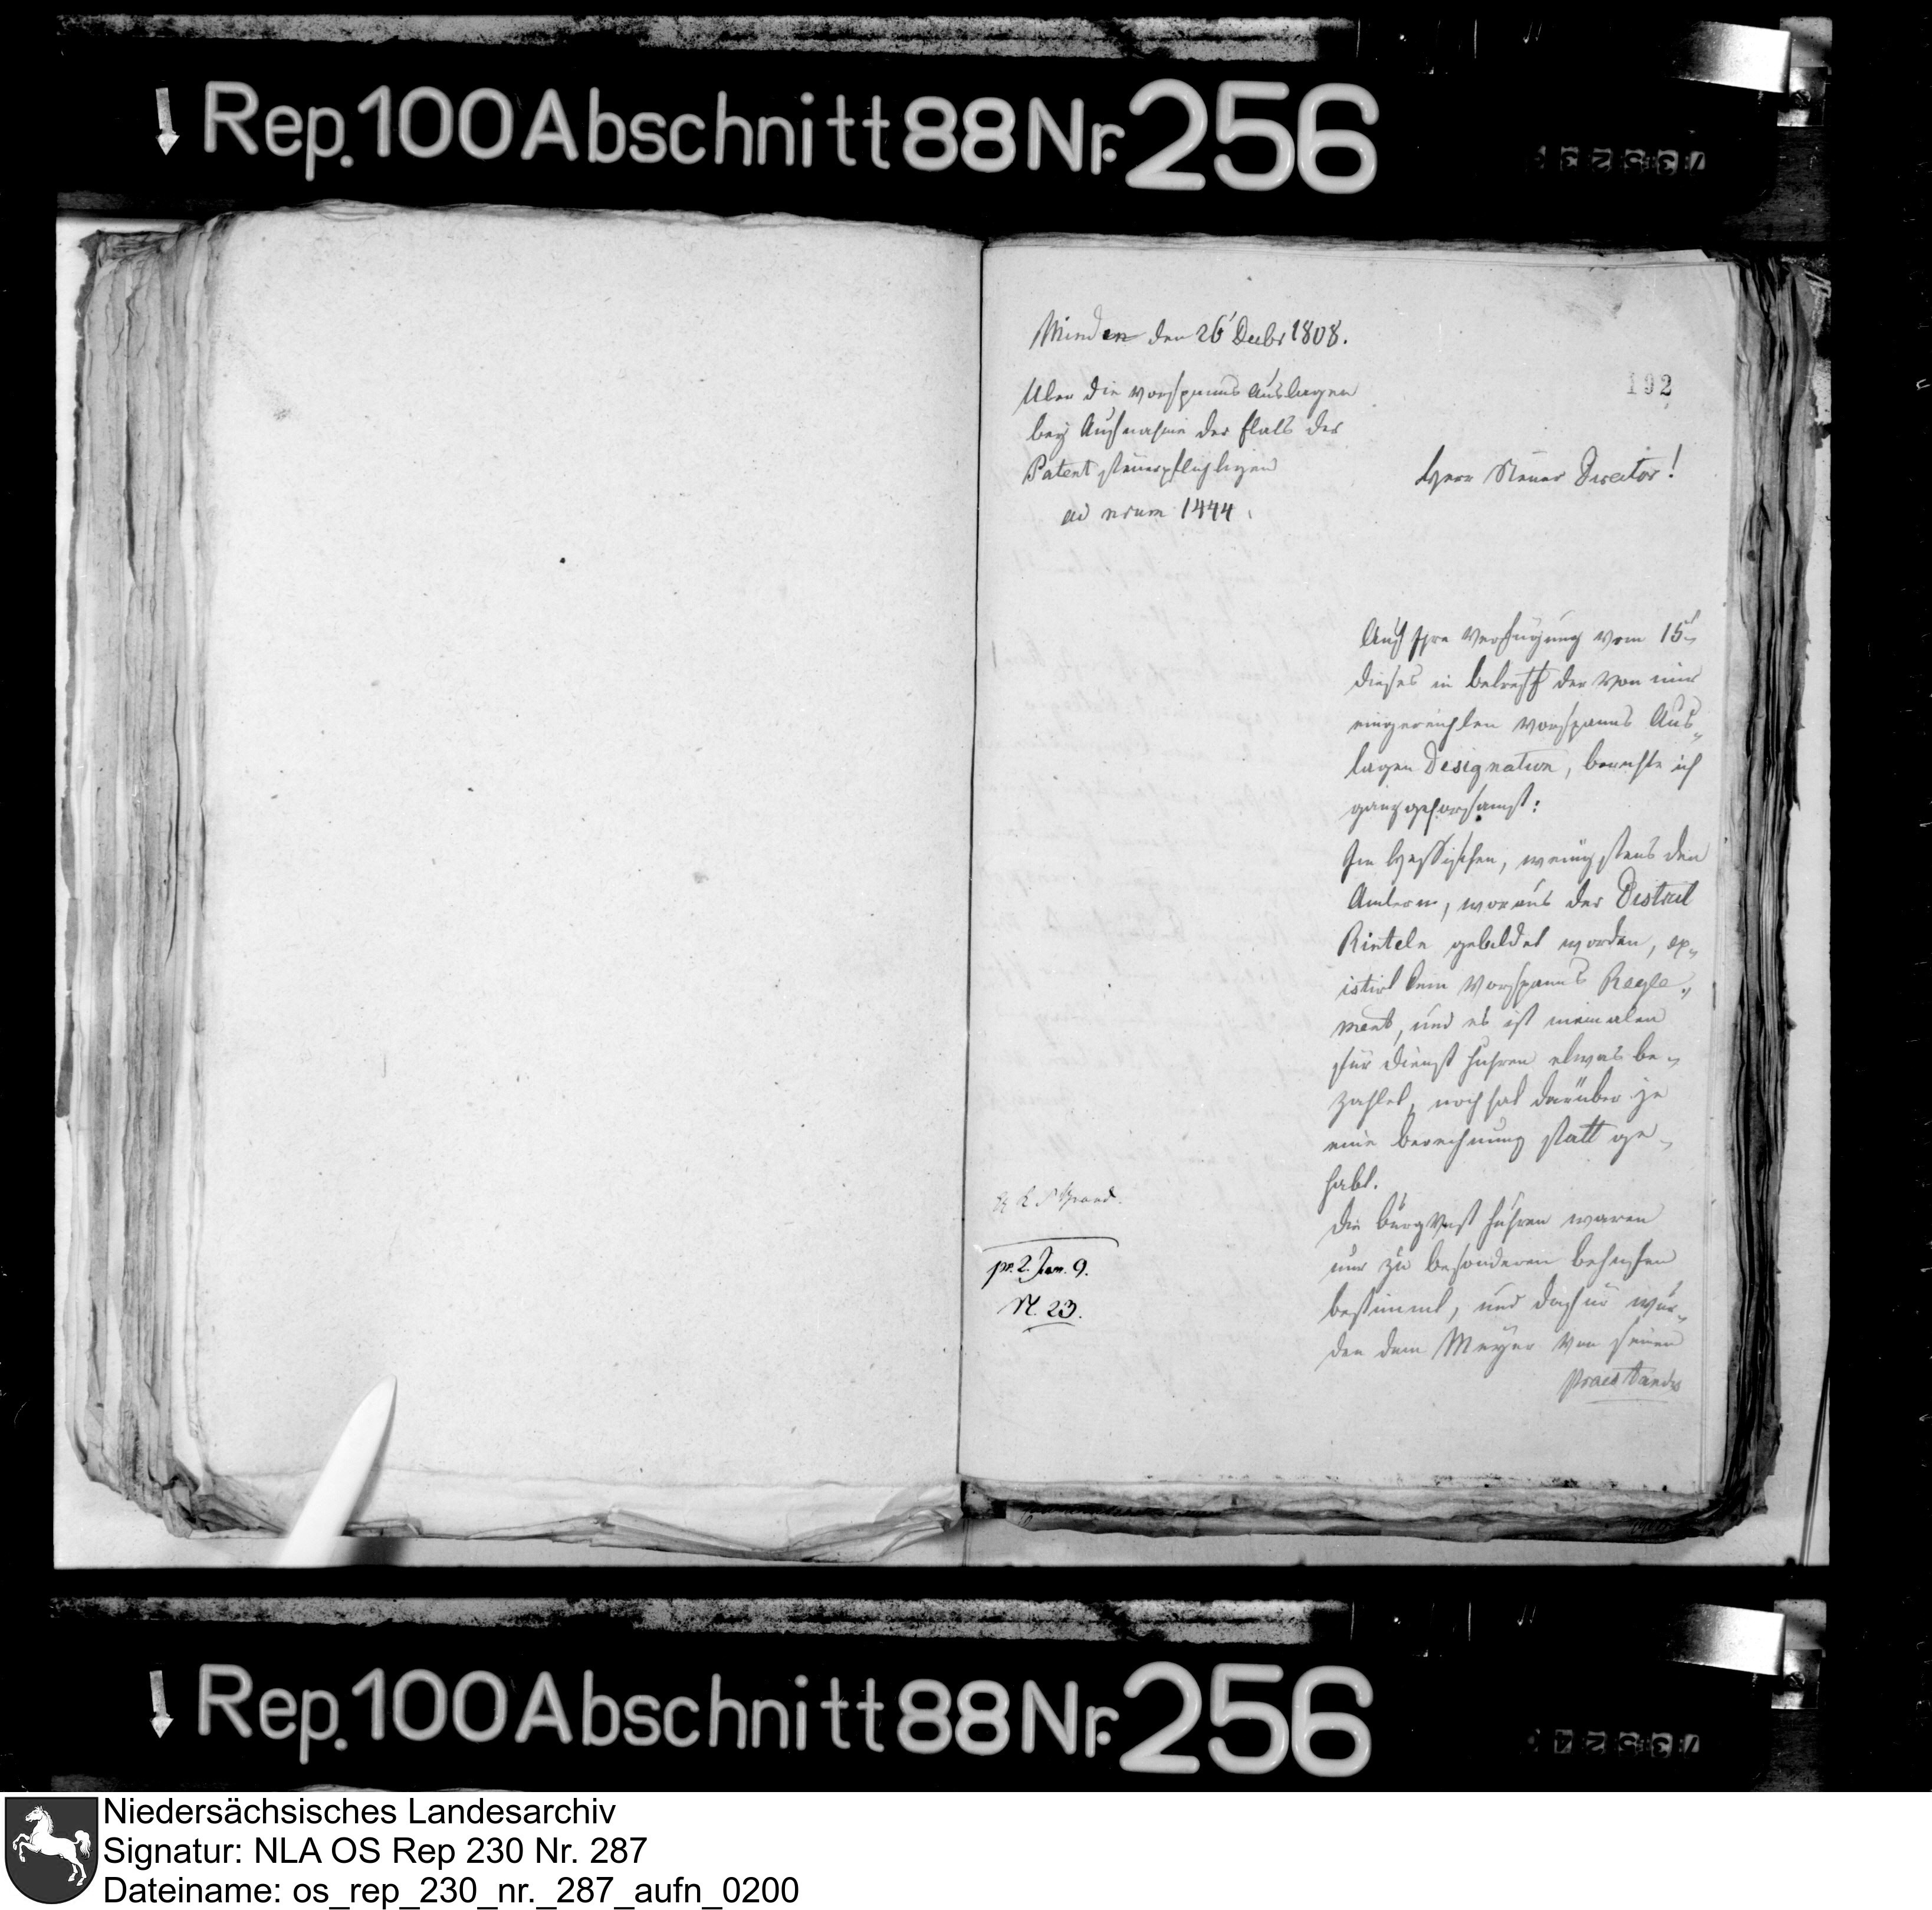 Rep. 100 Abschnitt 88 Nr. 256
Minden den 26' Decbr 1808.
192
Ueber die Vorspanns Auslagen
bey Aufnahme der Etats der
Patent steuerpflichtigen
ad nrum 1444.
Herr Steuer Director!
Auf Ihre Verfügung vom 15t
dieses in betreff der von mir
eingereichten Vorspanns Aus-
lagen Designation, berichte ich
ganz gehorsamst:
Im Hessischen, wenigstens den
Aemtern, woraus der District
Rinteln gebildet worden, ex-
istirt kein Vorspanns Regle-
ment, und es ist niemalen
für Dienst Fuhren etwas be-
zahlet, noch hat darüber je
eine berechnung statt ge-
habt.
Die burgvest Fuhren waren
nur zu besonderen behufen
bestimmt, und dafür wur-
den dem Meyer von seinen
Praestandis
pr. 2. Jan. 9.
N. 23.
Rep. 100 Abschnitt 88 Nr. 256
Niedersächsisches Landesarchiv
Signatur: NLA OS Rep 230 Nr. 287
Dateiname: os_rep_230_nr._287_aufn_0200